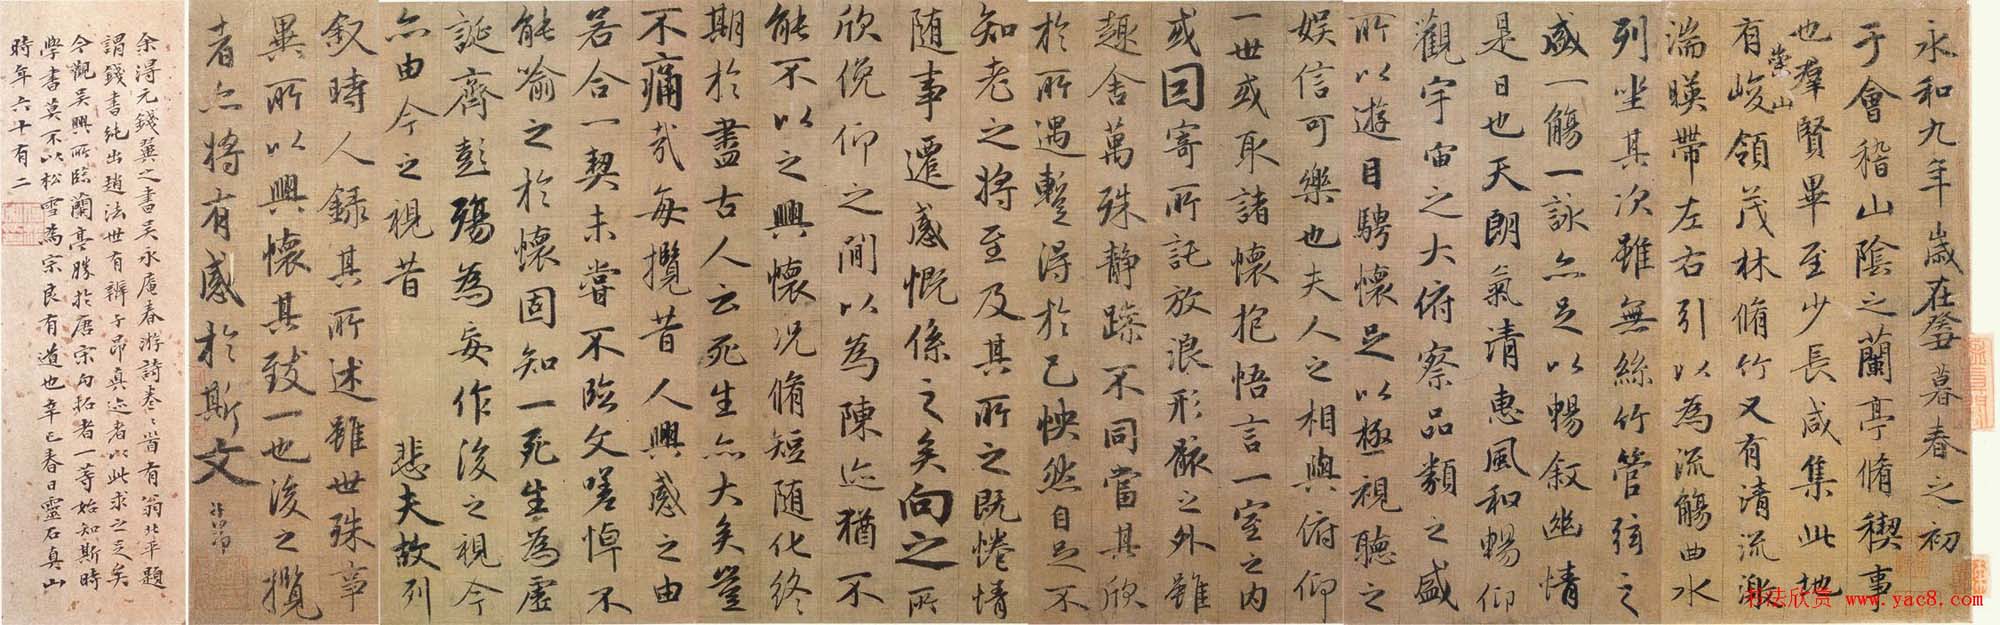 永和九年歲在癸丑暮春之初
于會稽山陰之蘭亭脩稧事
也羣賢畢至少長咸集此地
有崇山峻領茂林脩竹又有清流激
湍暎帶左右引以為流觴曲水
列坐其次雖無絲竹管弦之
盛一觴一詠亦足以暢叙幽情
是日也天朗氣清惠風和暢仰
觀宇宙之大俯察品類之盛
所以遊目騁懷足以極視聽之
娛信可樂也夫人之相與俯仰
一世或取諸懷抱悟言一室之內
或因寄所託放浪形骸之外雖
趣舍萬殊靜躁不同當其欣
於所遇蹔得於己怏然自足不
知老之將至及其所之既惓情
随事遷感慨係之矣向之所
欣俛仰之間以為陳迹猶不
能不以之興懷況脩短随化終
期於盡古人云死生亦大矣豈
不痛哉每攬昔人興感之由
若合一契未嘗不臨文嗟悼不
能喻之於懷固知一死生為虛
誕齊彭殤為妄作後之視今
亦由今之視昔 悲夫故列
叙時人錄其所述雖世殊事
異所以興懷其致一也後之攬
者亦將有感於斯文
余得元錢翼之書吳永庵春游詩卷卷首有翁北平題
謂錢書純出趙法世有辨子昂真迹者以此求之是矣
今觀吳興所臨蘭亭勝於唐宋勾拓者一等始知斯時
學書莫不以松雪為宗良有道也辛巳春日靈石真山
時年六十有二
书法欣赏 www.yac8.com